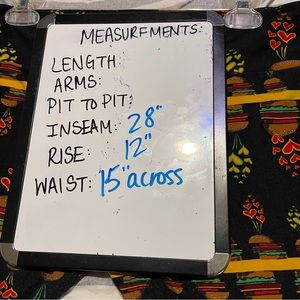 MEASUREMENTS:
LENGTH:
ARMS:
PIT TO PIT:
INSEAM: 28"
RISE: 12"
WAIST: 15" across